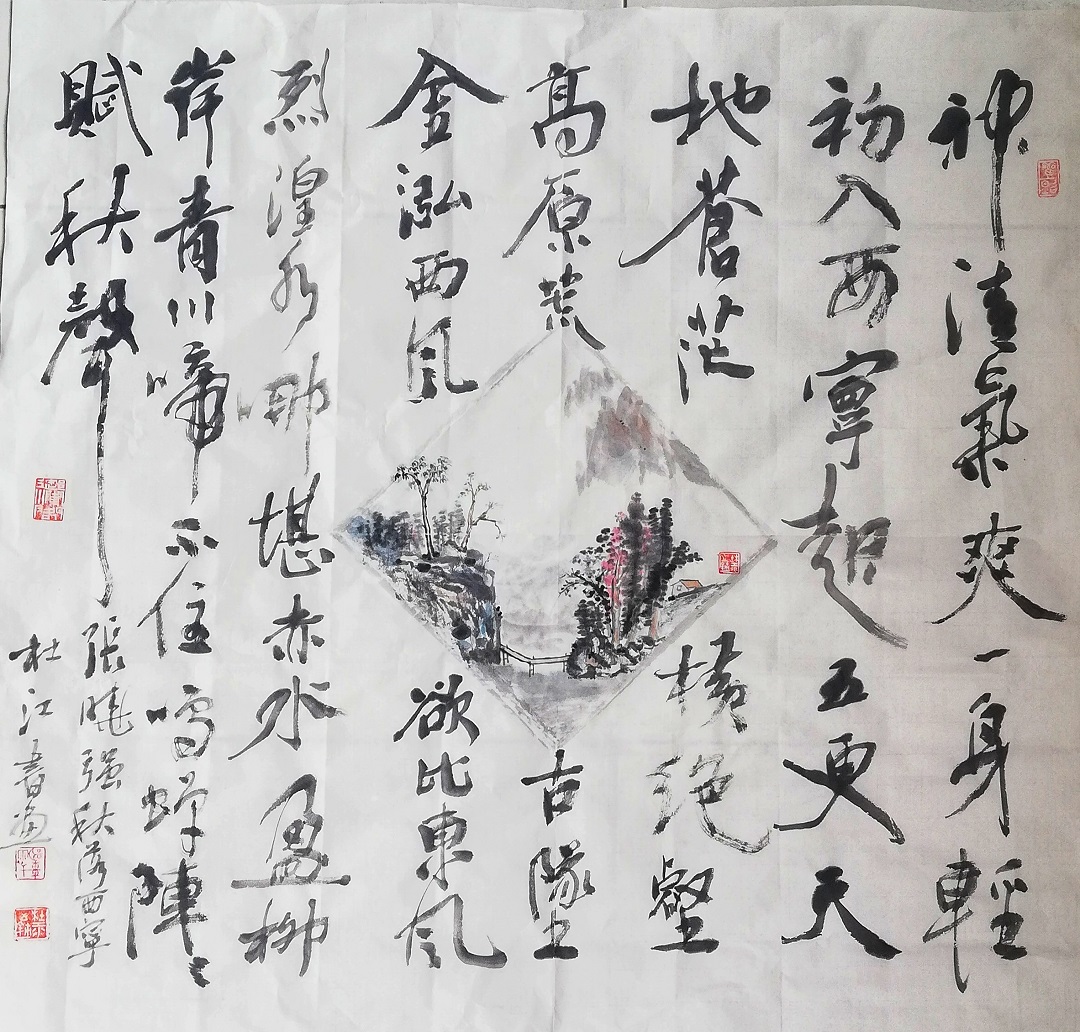 神清氣爽一身輕
初入西寧起五更天
地蒼茫橫絕壑
高原荒古墜
金泓西風欲比東風
烈湟水哪堪赤水盈柳
岸青川啼不住鳴蟬陣〻
賦秋聲
張曉强秋落西寧
杜江書畫